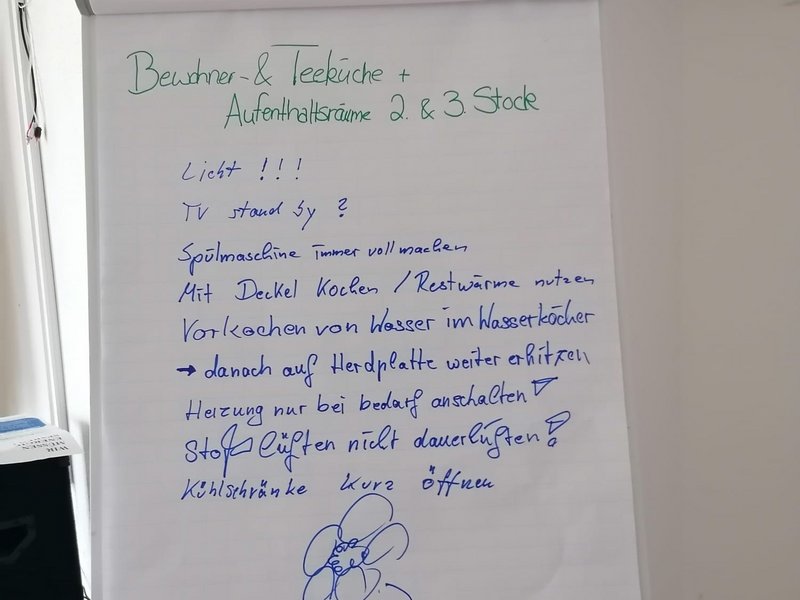 Bewohner- & Teeküche +
Aufenthaltsräume 2. & 3. Stock
Licht !!!
TV stand by ?
Spülmaschine immer voll machen
Mit Deckel Kochen / Restwärme nutzen
Vorkochen von Wasser im Wasserkocher
→ danach auf Herdplatte weiter erhitzen
Heizung nur bei bedarf anschalten !
Stoß lüften nicht dauerlüften !
Kühlschränke kurz öffnen
WIR
MESSEN